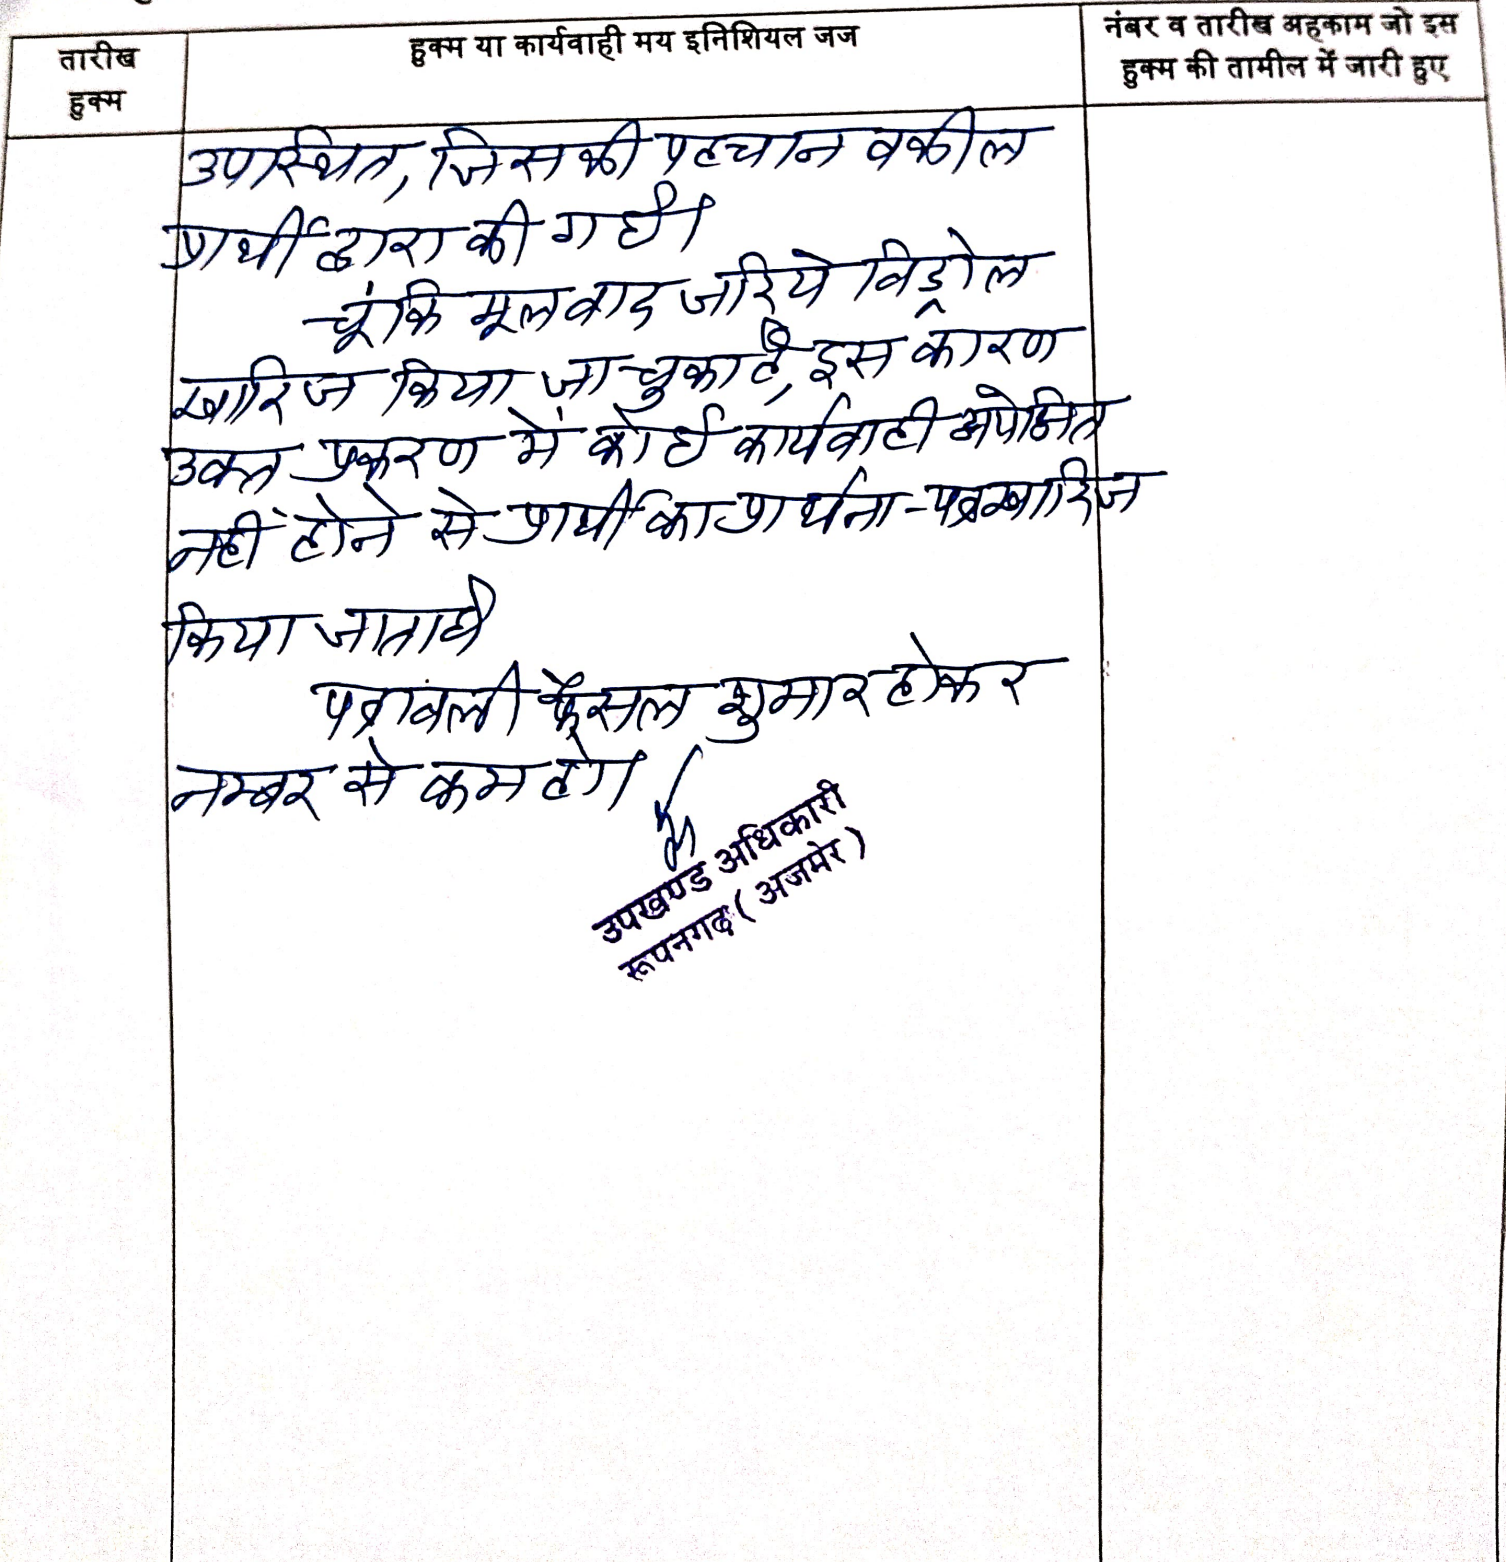 तारीख
हुक्म
हुक्म या कार्यवाही मय इनिशियल जज
नंबर व तारीख अहकाम जो इस
हुक्म की तामील में जारी हुए
उपस्थित, जिसकी पहचान वकील
प्रार्थी द्वारा की गई।
चूंकि मूलवाद जरिये विड्रोल
खारिज किया जा चुका है, इस कारण
उक्त प्रकरण में कोई कार्यवाही अपेक्षित
नहीं होने से प्रार्थी का प्रार्थना-पत्र खारिज
किया जाता है
पत्रावली फैसल शुमार होकर
नम्बर से कम हो।
उपखण्ड अधिकारी
रूपनगढ़ (अजमेर)